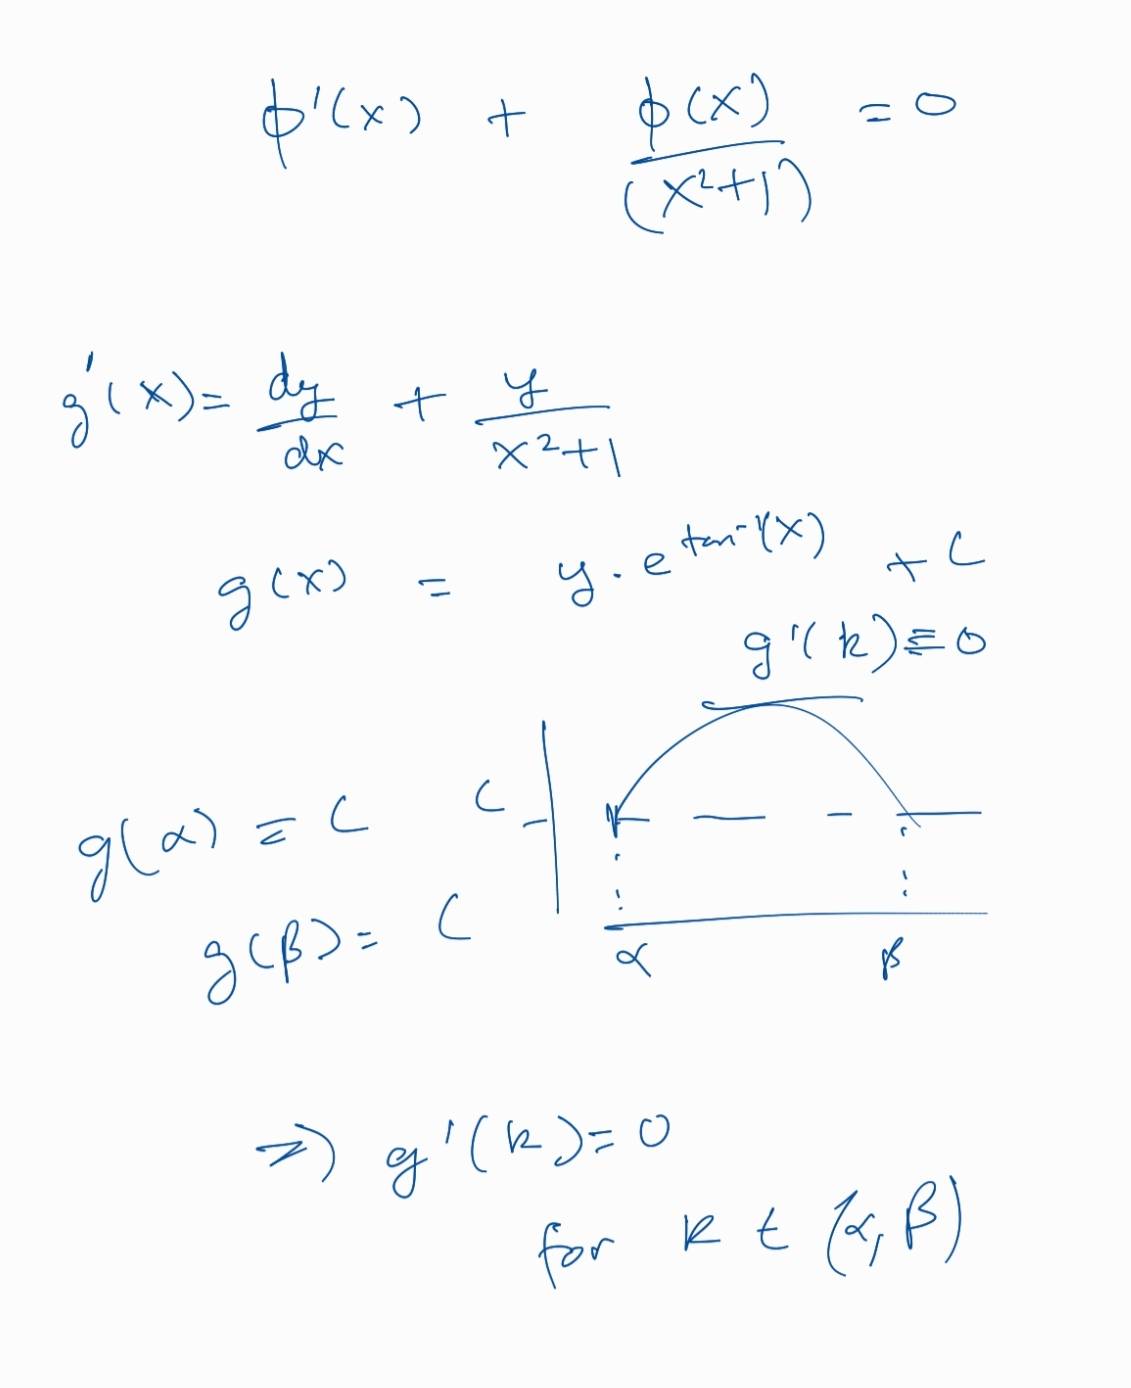 ϕ'(x) + ϕ(x)/(x²+1) = 0
g'(x) = dy/dx + y/(x²+1)
g(x) = y · e^(tan⁻¹(x)) + C
g'(k) = 0
g(α) = C
C
g(β) = C
α β
⇒ g'(k) = 0
for k ∈ (α, β)